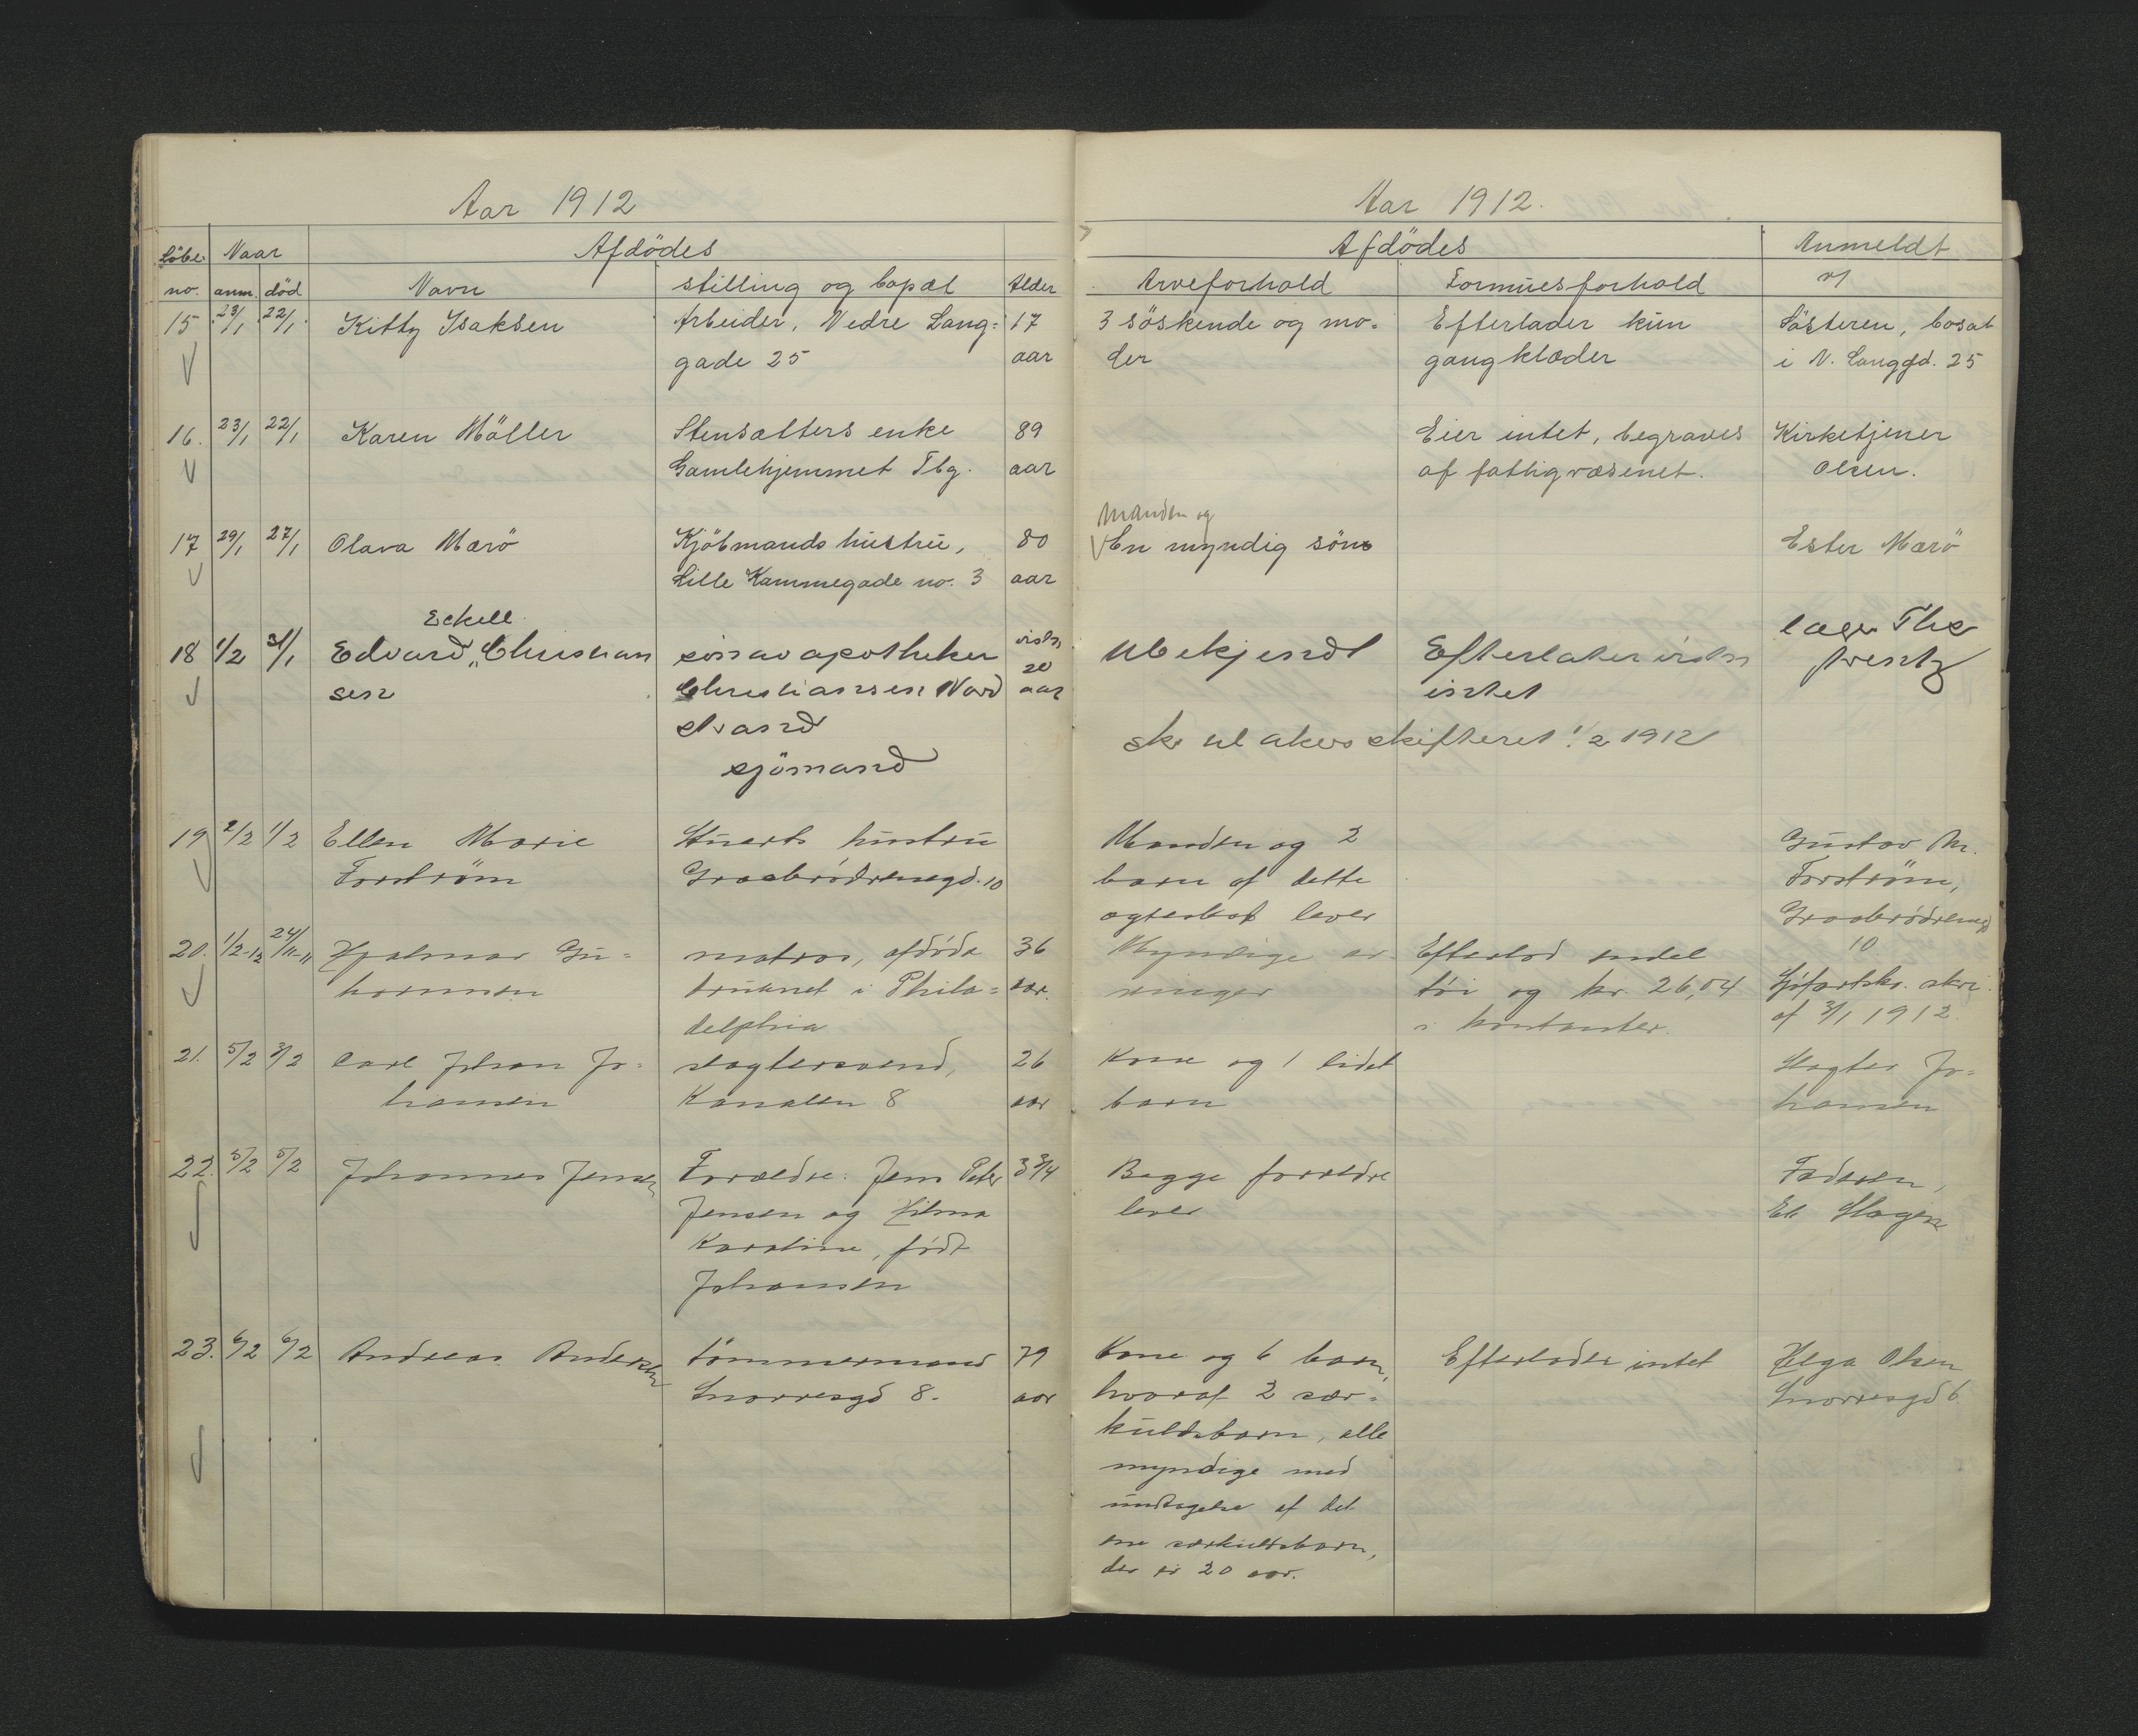 Aar 1912
Löbe no.
Naar
anm. död
Afdödes
Navn
stilling og bopæl
Alder
15 23/1 22/1 Kitty Isaksen
Arbeider, Nedre Lang-
gade 25
17
aar
16. 23/1 22/1 Karen Möller
Stensætters enke
Gamlehjemmet Tbg.
89
aar
17 29/1 27/1 Olava Marö
Kjöbmands hustru,
Lille Kammegade no. 3
80
aar
Eckell
18 1/2 31/1 Edvard „Christian
sen
sön av apotheker
Christiansen Nord
strand
sjömand
20
aar
19 2/2 1/2 Ellen Marie
Forström
Stuerts hustru
Graabrödrenegd. 10
20. 1/2-12 24/11-11 Hjalmar Gu-
matros, afdöde
druknet i Phila-
delphia
36
aar.
21. 5/2 3/2 Carl Johan Jo-
hansen
slagtersvend,
Kanalen 8
26
aar
22. 5/2 5/2 Johannes Jensen
Forældre: Jens Peter
Jensen og Hilma
Karoline, født
Johansen
3 3/4
23. 6/2 6/2 Andreas Andersen
tömmermand
Snorresgd 8.
79
aar
Aar 1912.
Afdödes
Anmeldt
af
Arveforhold
Formuesforhold
3 söskende og mo-
der
Efterlader kun
gangklæder
Sösteren, bosat
i N. Langgd. 25
Eier intet, begraves
af fattigvæsenet.
Kirketjener
Olsen.
Manden og
En myndig sön
Ester Marö
Ubekjendt
Efterlater
intet
læge Ths
skr til akers skifteret 1/2 1912
Manden og 2
barn af dette
ægteskab lever
Gustav M.
Forström,
Graabrödrenegd
10
Myndige ar-
vinger
Efterlod endel
töi og kr. 26,04
i kontanter.
Sjöfartsktr. skr.
af 31/1 1912.
Kone og 1 lidet
barn
Slagter Jo-
hansen
Begge forældre
lever
Faderen,
Et. Slagen
Kone og 6 barn,
hvoraf 2 sær-
kuldsbarn, alle
myndige med
undtagelse af det
ene særkuldsbarn,
der er 20 aar.
Efterlader intet
Helga Olsen
Snorresgd 6